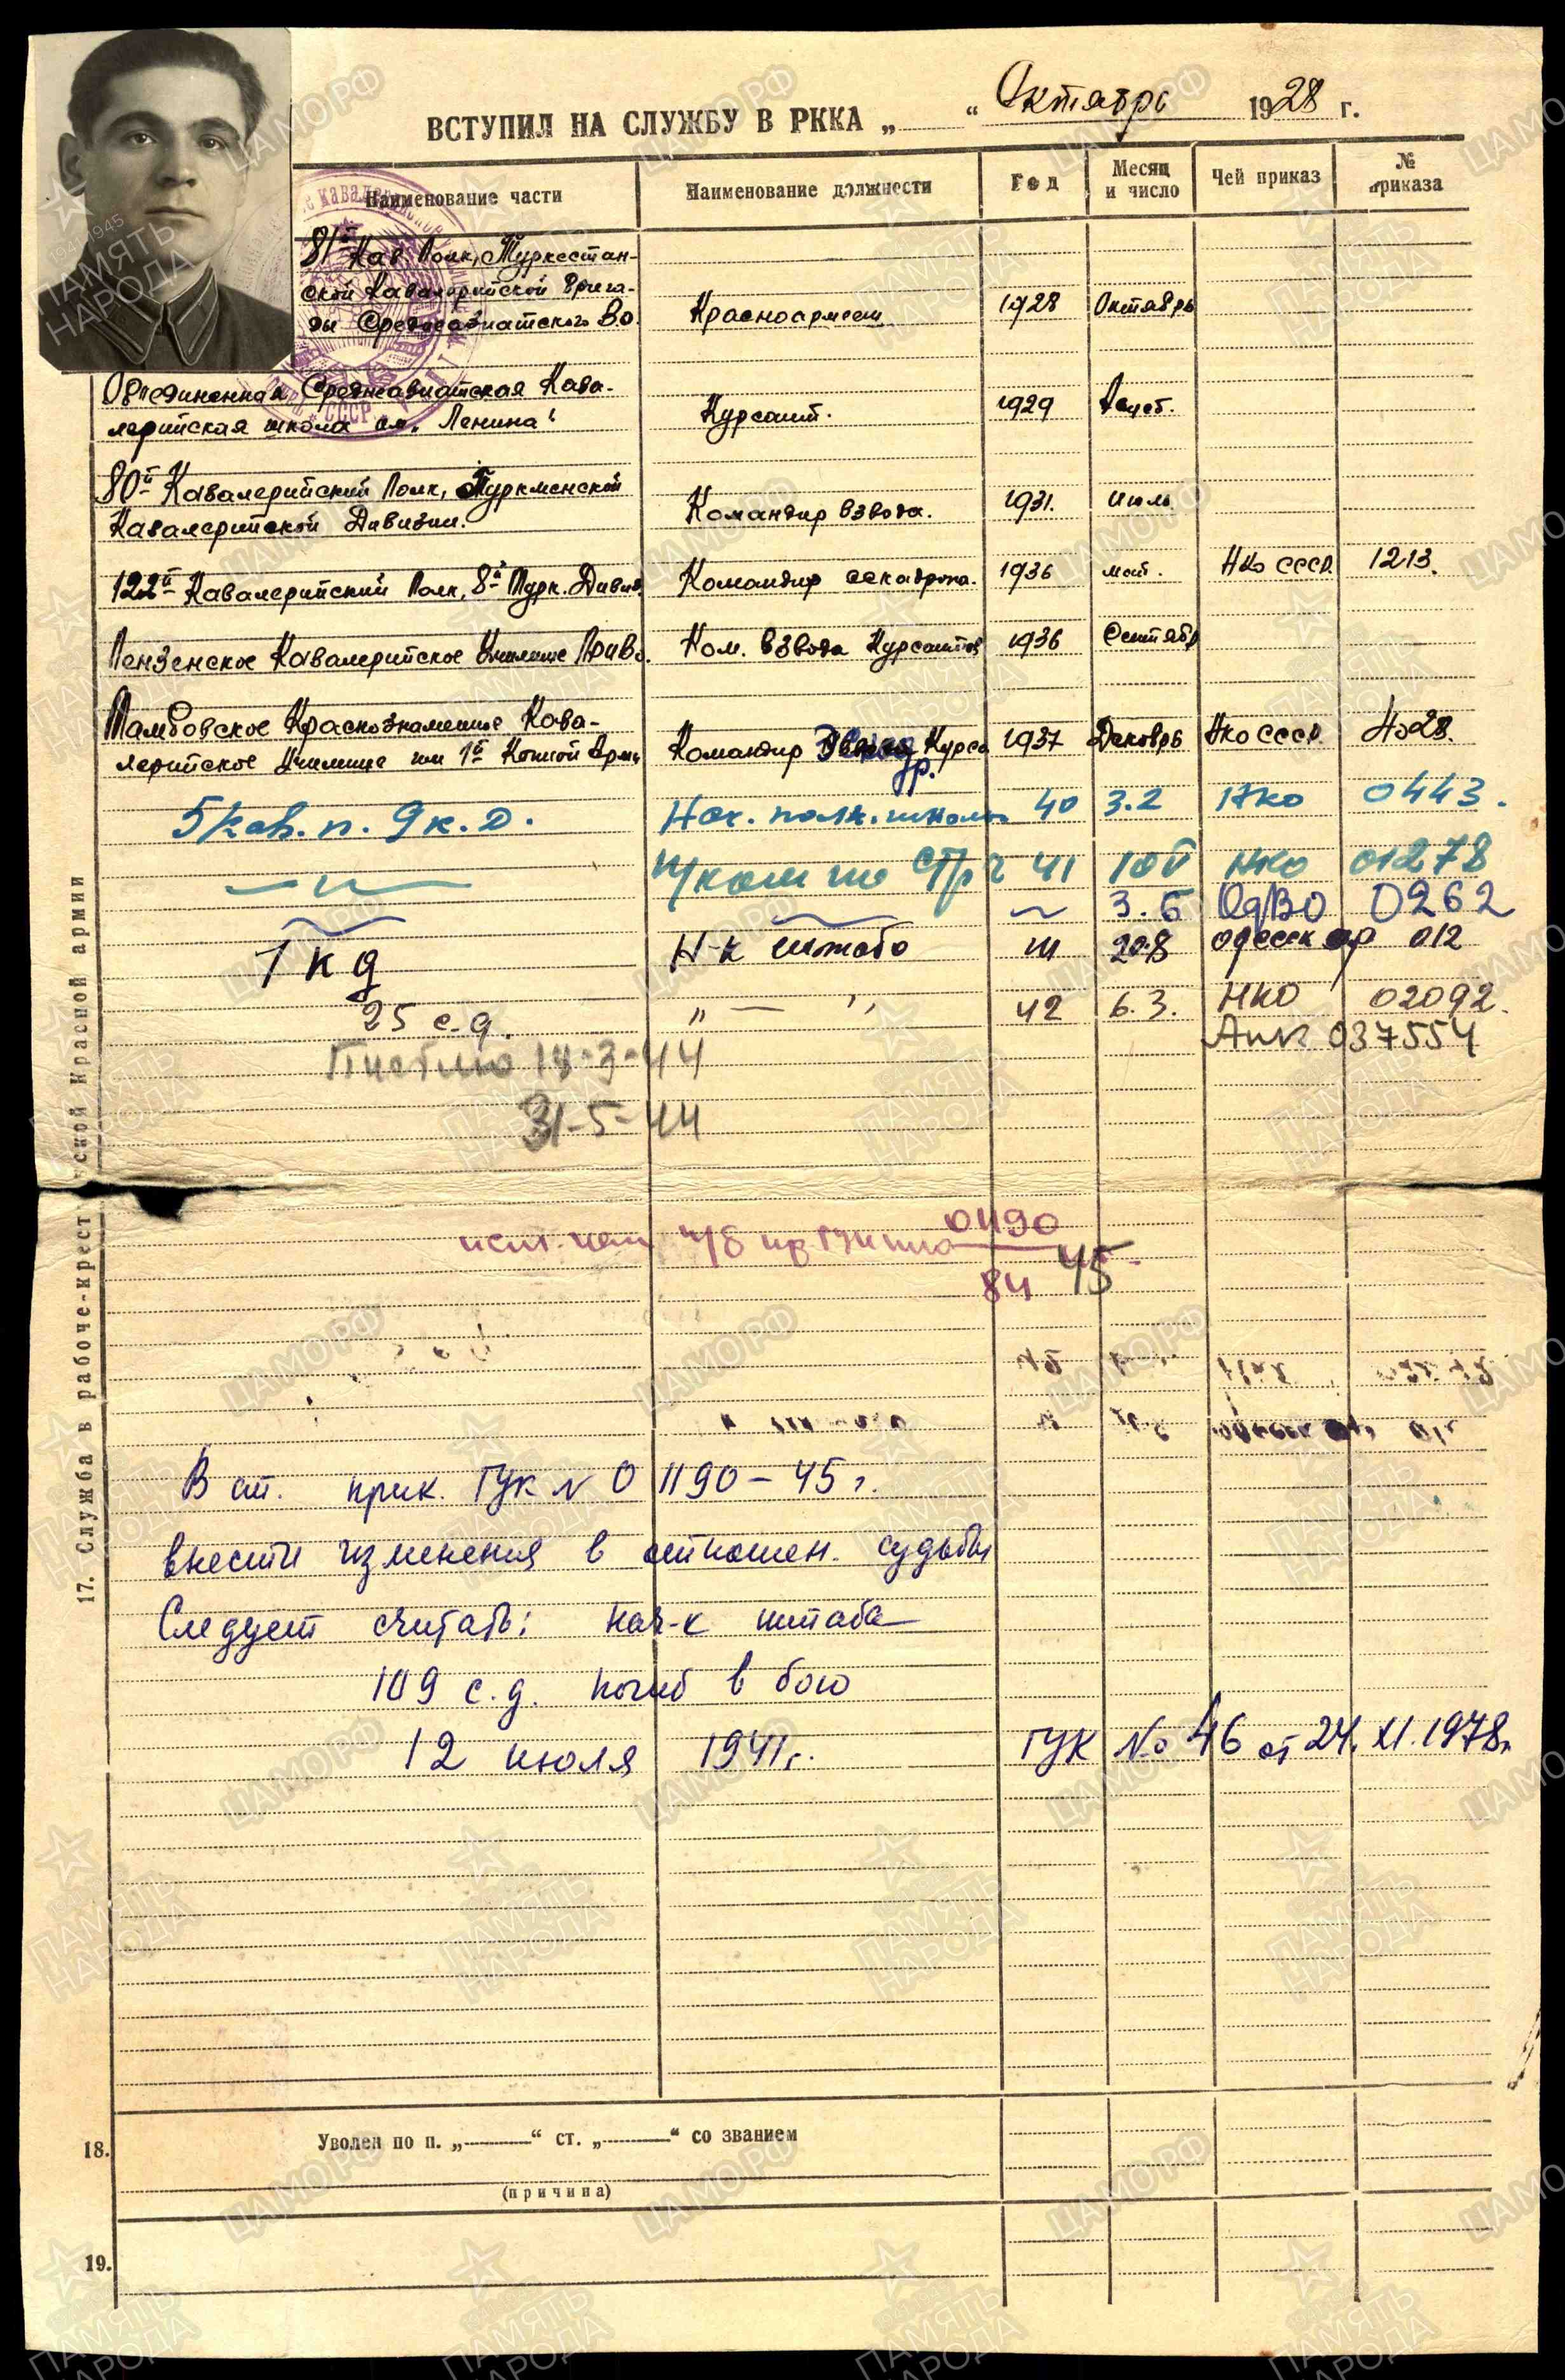 ВСТУПИЛ НА СЛУЖБУ В РККА „ “ Октябрь 1928 г.
Наименование части Наименование должности Год Месяц и число Чей приказ № приказа
81й Кав. Полк, Туркестан-
ской Кавалерийской Брига-
ды Среднеазиатского В.О. Красноармеец 1928 Октябрь
Объединенная Среднеазиатская Кава-
лерийская школа им. Ленина Курсант. 1929 Август.
80й Кавалерийский Полк, Туркменской
Кавалерийской Дивизии. Командир взвода. 1931. Июль
122й Кавалерийский Полк, 8й Турк. Дивиз. Командир эскадрона. 1936 май. НКО СССР 1213.
Пензенское Кавалерийское Училище ПриВО. Ком. взвода Курсантов 1936 Сентябр
Тамбовское Краснознаменное Кава-
лерийское Училище им 1й Конной Арми Командир Курса 1937 Декабрь НКО СССР №28.
5 кав. п. 9 к. д. Нач. полк. школы 40 3.2 НКО 0443.
— „ — П/ком по стр ч 41 10 V НКО 01278
3.6 ОдВО 0262
1 кд Н-к штаба 20.8 одесск ар 012
25 с.д. „ — „ 42 6.3. НКО 02092.
037554
18-3-44
31-5-44
01190
84 45
В от. прик. ГУК N 01190 – 45 г.
внести изменения в отношен. судьбы
Следует считать: нач-к штаба
109 с.д. погиб в бою
12 июля 1941 г. ГУК No 46 от 24.XI.1978г.
17. Служба в рабоче-крест ской Красной армии
18. Уволен по п. „ “ ст. „ “ со званием
(причина)
19.
СССР
ЦАМО.РФ
ПАМЯТЬ
НАРОДА